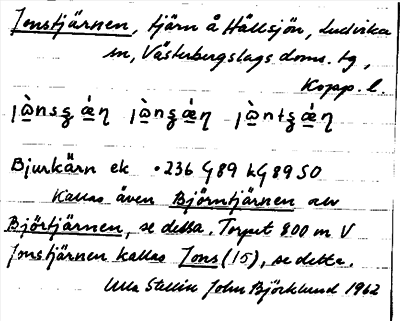 Jonstjärnen, tjärn å Hällsjön, Ludvika
sn, Västerbergslags doms. tg,
Kopp. l.
Bjurkärn ek .236 G89 hG89 SO
Kallas även Björntjärnen alv
Björtjärnen, se detta. Torpet 800 m V
Jonstjärnen kallas Jons (15), se detta.
Ulla Stellin John Björklund 1962